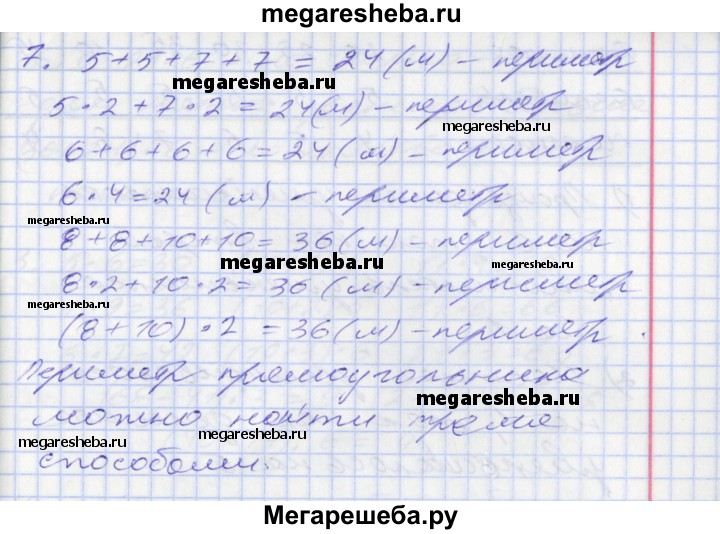 megaresheba.ru
7. 5+5+7+7 = 24 (м) – периметр
megaresheba.ru
5·2+7·2=24(м) – периметр
megaresheba.ru
6+6+6+6=24(м) – периметр
6·4=24 (м) – периметр
megaresheba.ru
8+8+10+10=36(м) – периметр
megaresheba.ru
megaresheba.ru
8·2+10·2=36 (м) – периметр
megaresheba.ru
(8+10)·2 =36(м) – периметр
Периметр прямоугольника
megaresheba.ru
можно найти тремя
megaresheba.ru
megaresheba.ru
способами.
Мегарешеба.ру